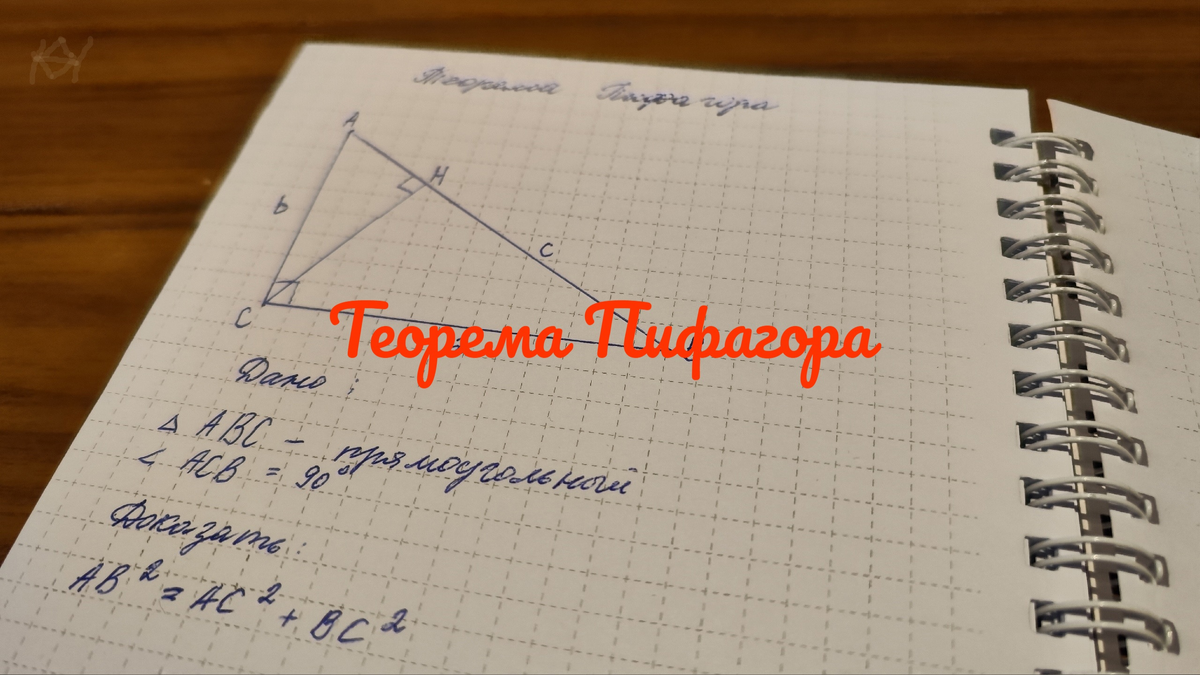 Теорема Пифагора
A
H
b
c
C
Теорема Пифагора
Дано:
△ ABC - прямоугольный
∠ ACB = 90°
Доказать:
AB² = AC² + BC²